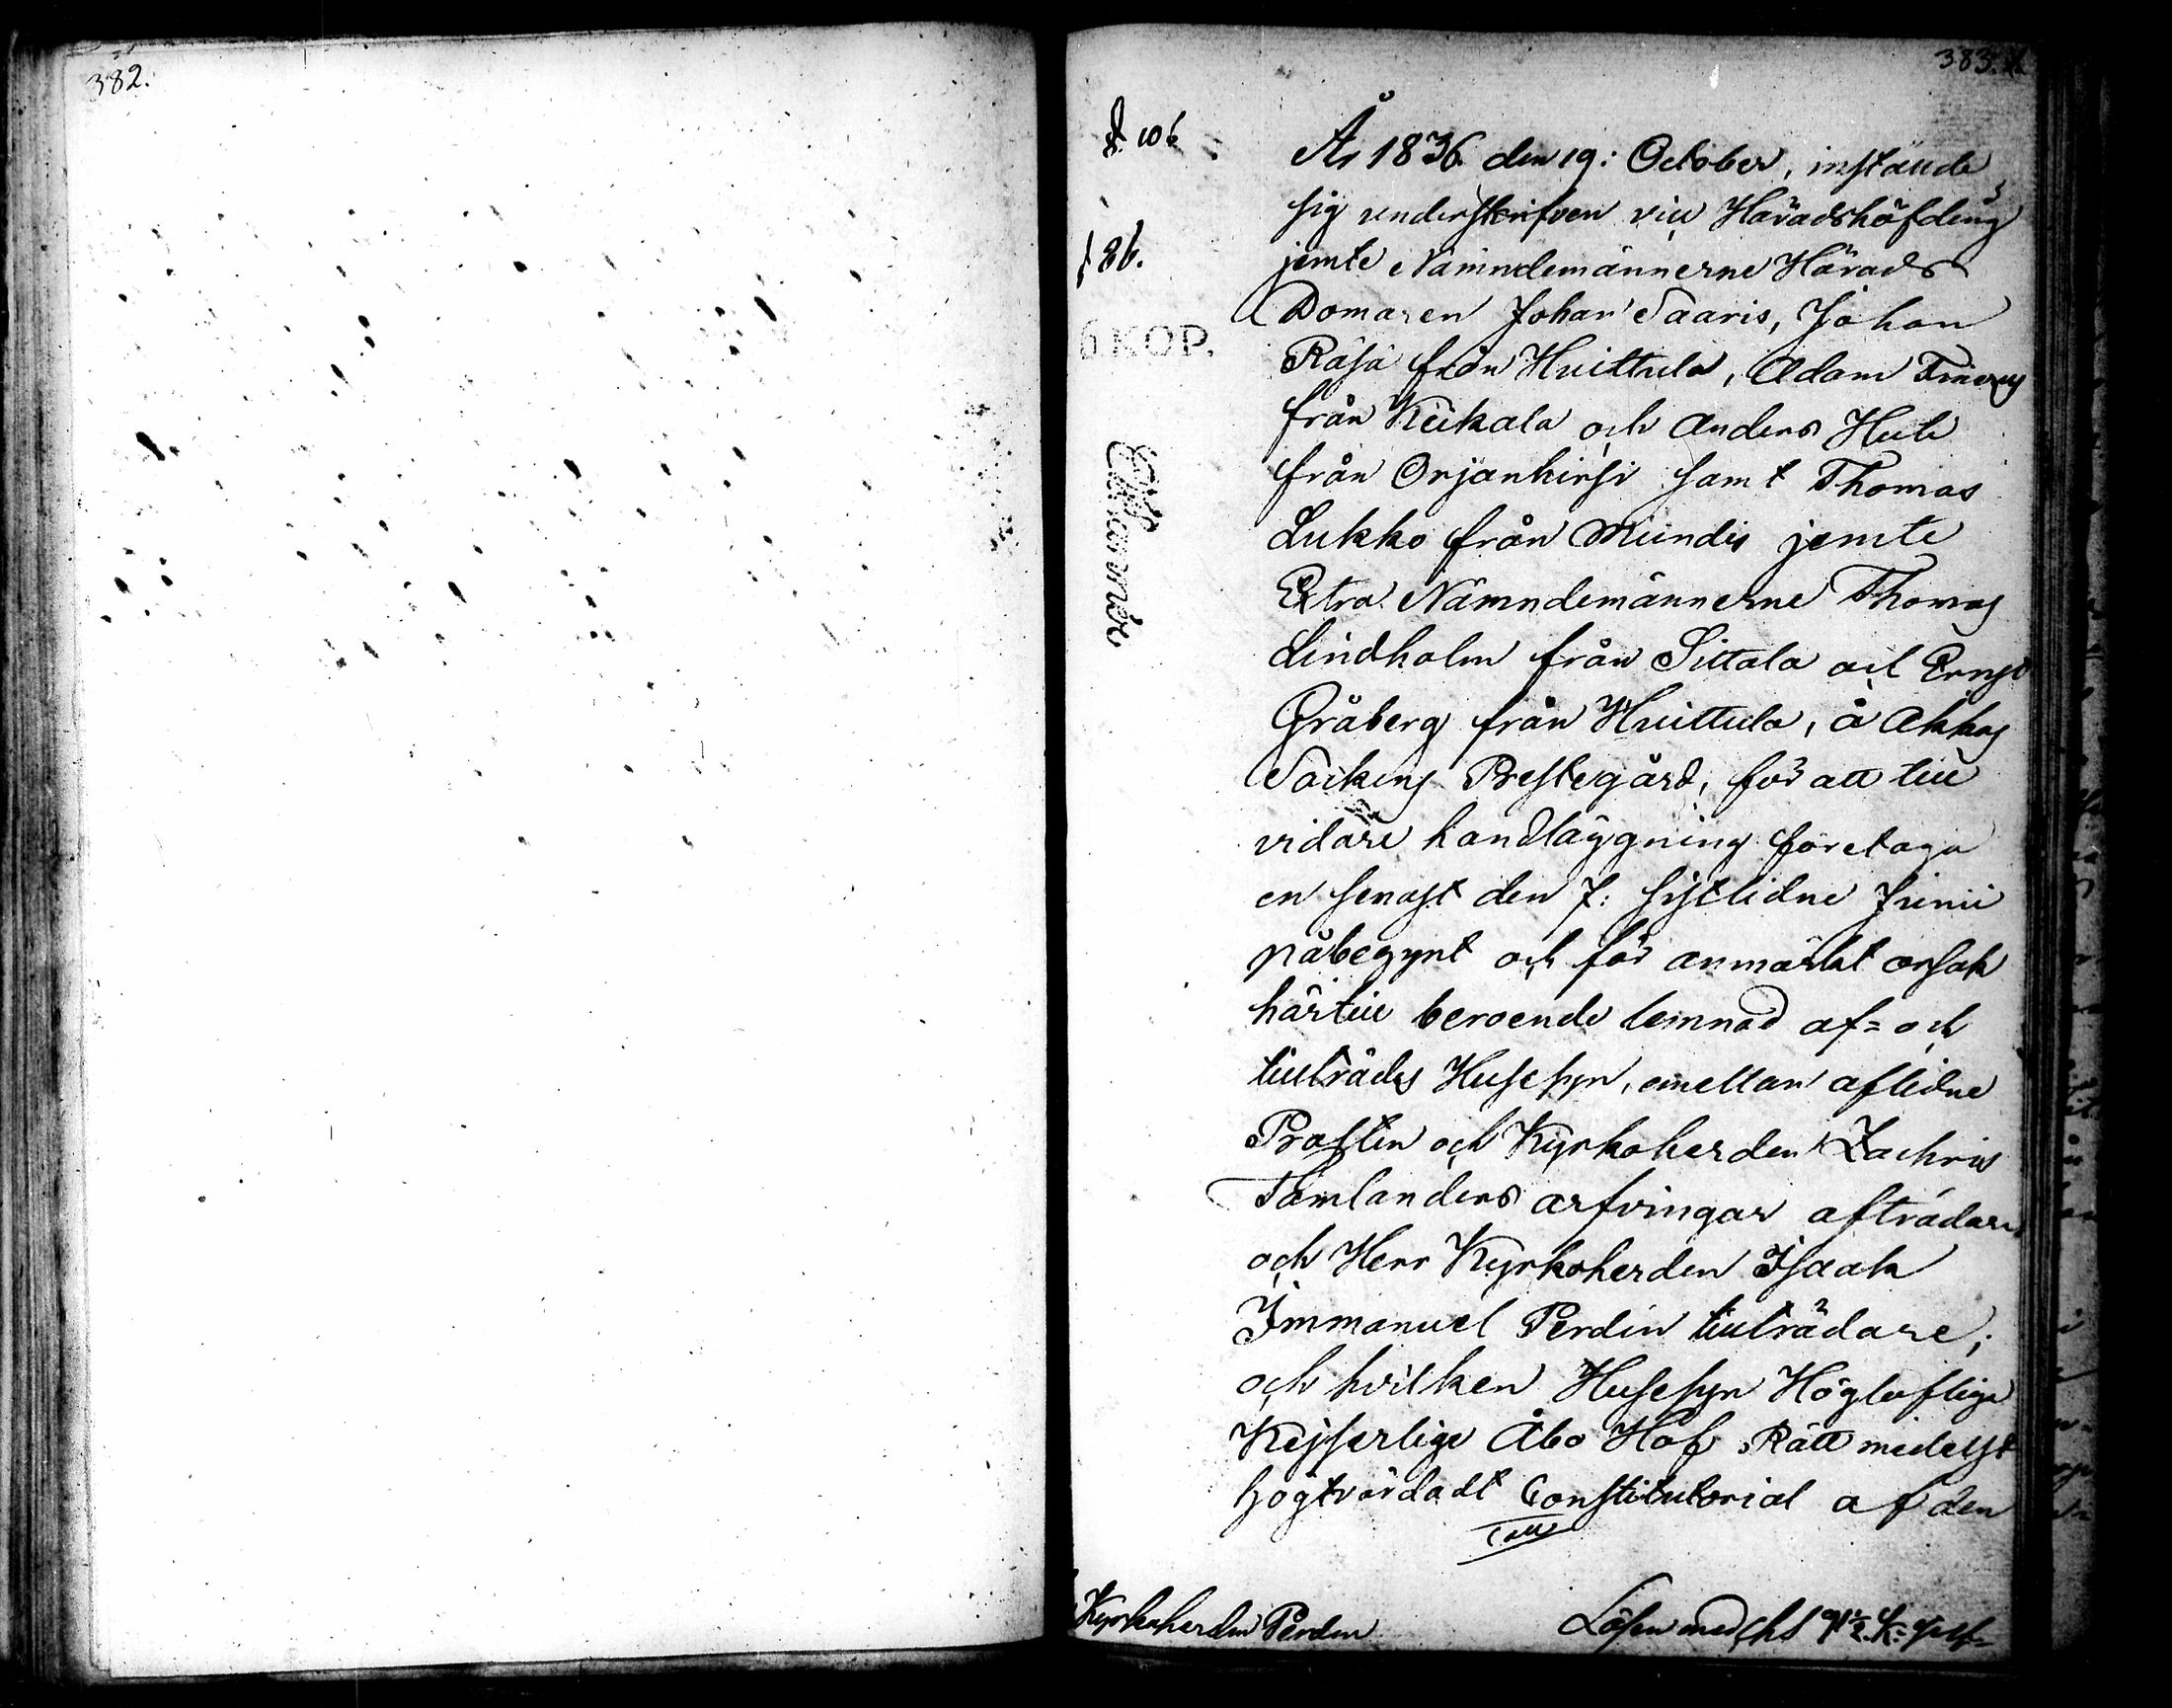 382.
383.
§. 106
§ 86.
6 KOP.
År 1836 den 19: October, instälde
sig underskrifven vice Häradshöfding
jemte Nämndemännerne Härads
Domaren Johan Saaris, Johan
Räsä från Huittula, Adam
från Keikala och Anders Heli
från Orjanhirsi samt Thomas
Lukko från Mundis jemte
Extra Nämndemännerne Thomas
Lindholm från Sittala och Ernst
Gråberg från Huittula, å Akkas
Sockens Prestegård, för att till
vidare handläggning företaga
en senast den 7: sistlidne Junii
påbegynt och för anmärkt orsak
härtill beroende lemnad af= och
tillträdes Husesyn, emellan aflidne
Prosten och Kyrkoherden Zachris
Tamlanders arfvingar afträdare,
och Herr Kyrkoherden Isaak
Immanuel Perdin tillträdare;
och hvilken Husesyn Höglofliga
Kejserliga Åbo Hof Rätt medelst
högtvördadt Constitutorial af den
Kyrkoherden Perden
Lösen med